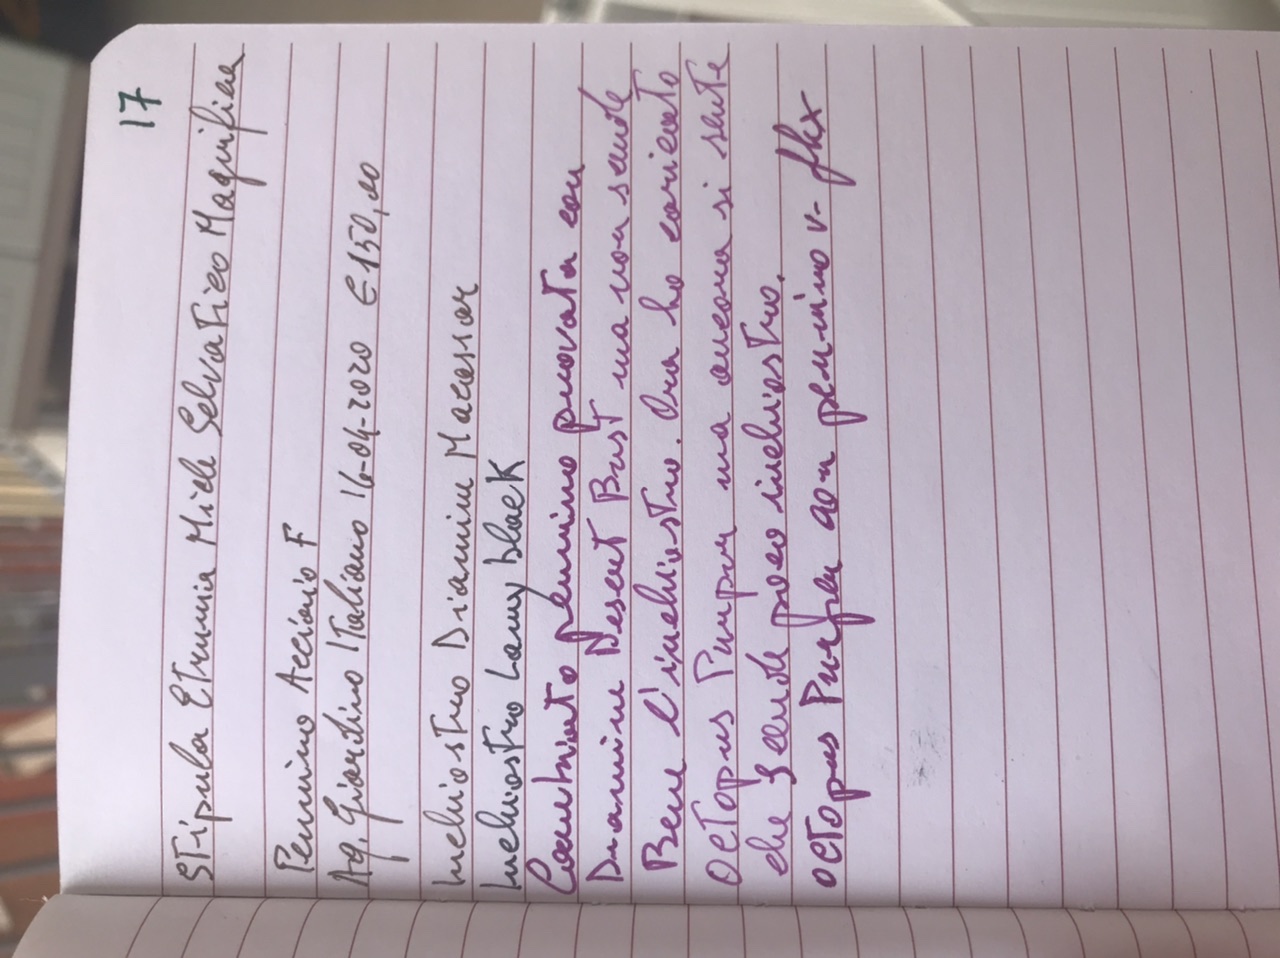 17
Stipula Etruria Miele Selvatico Magnifica
Pennino Acciaio F
Aq. Giardino Italiano 16-04-2020 € 150,00
Inchiostro Diamine Macassar
Inchiostro Lamy black
Cambiato pennino provata con
Diamine Desert Bust ma non scende
Bene l'inchiostro. Ora ho caricato
Octopus Purpur ma ancora si sente
che scende poco inchiostro.
Octopus Purpur con pennino V-flex